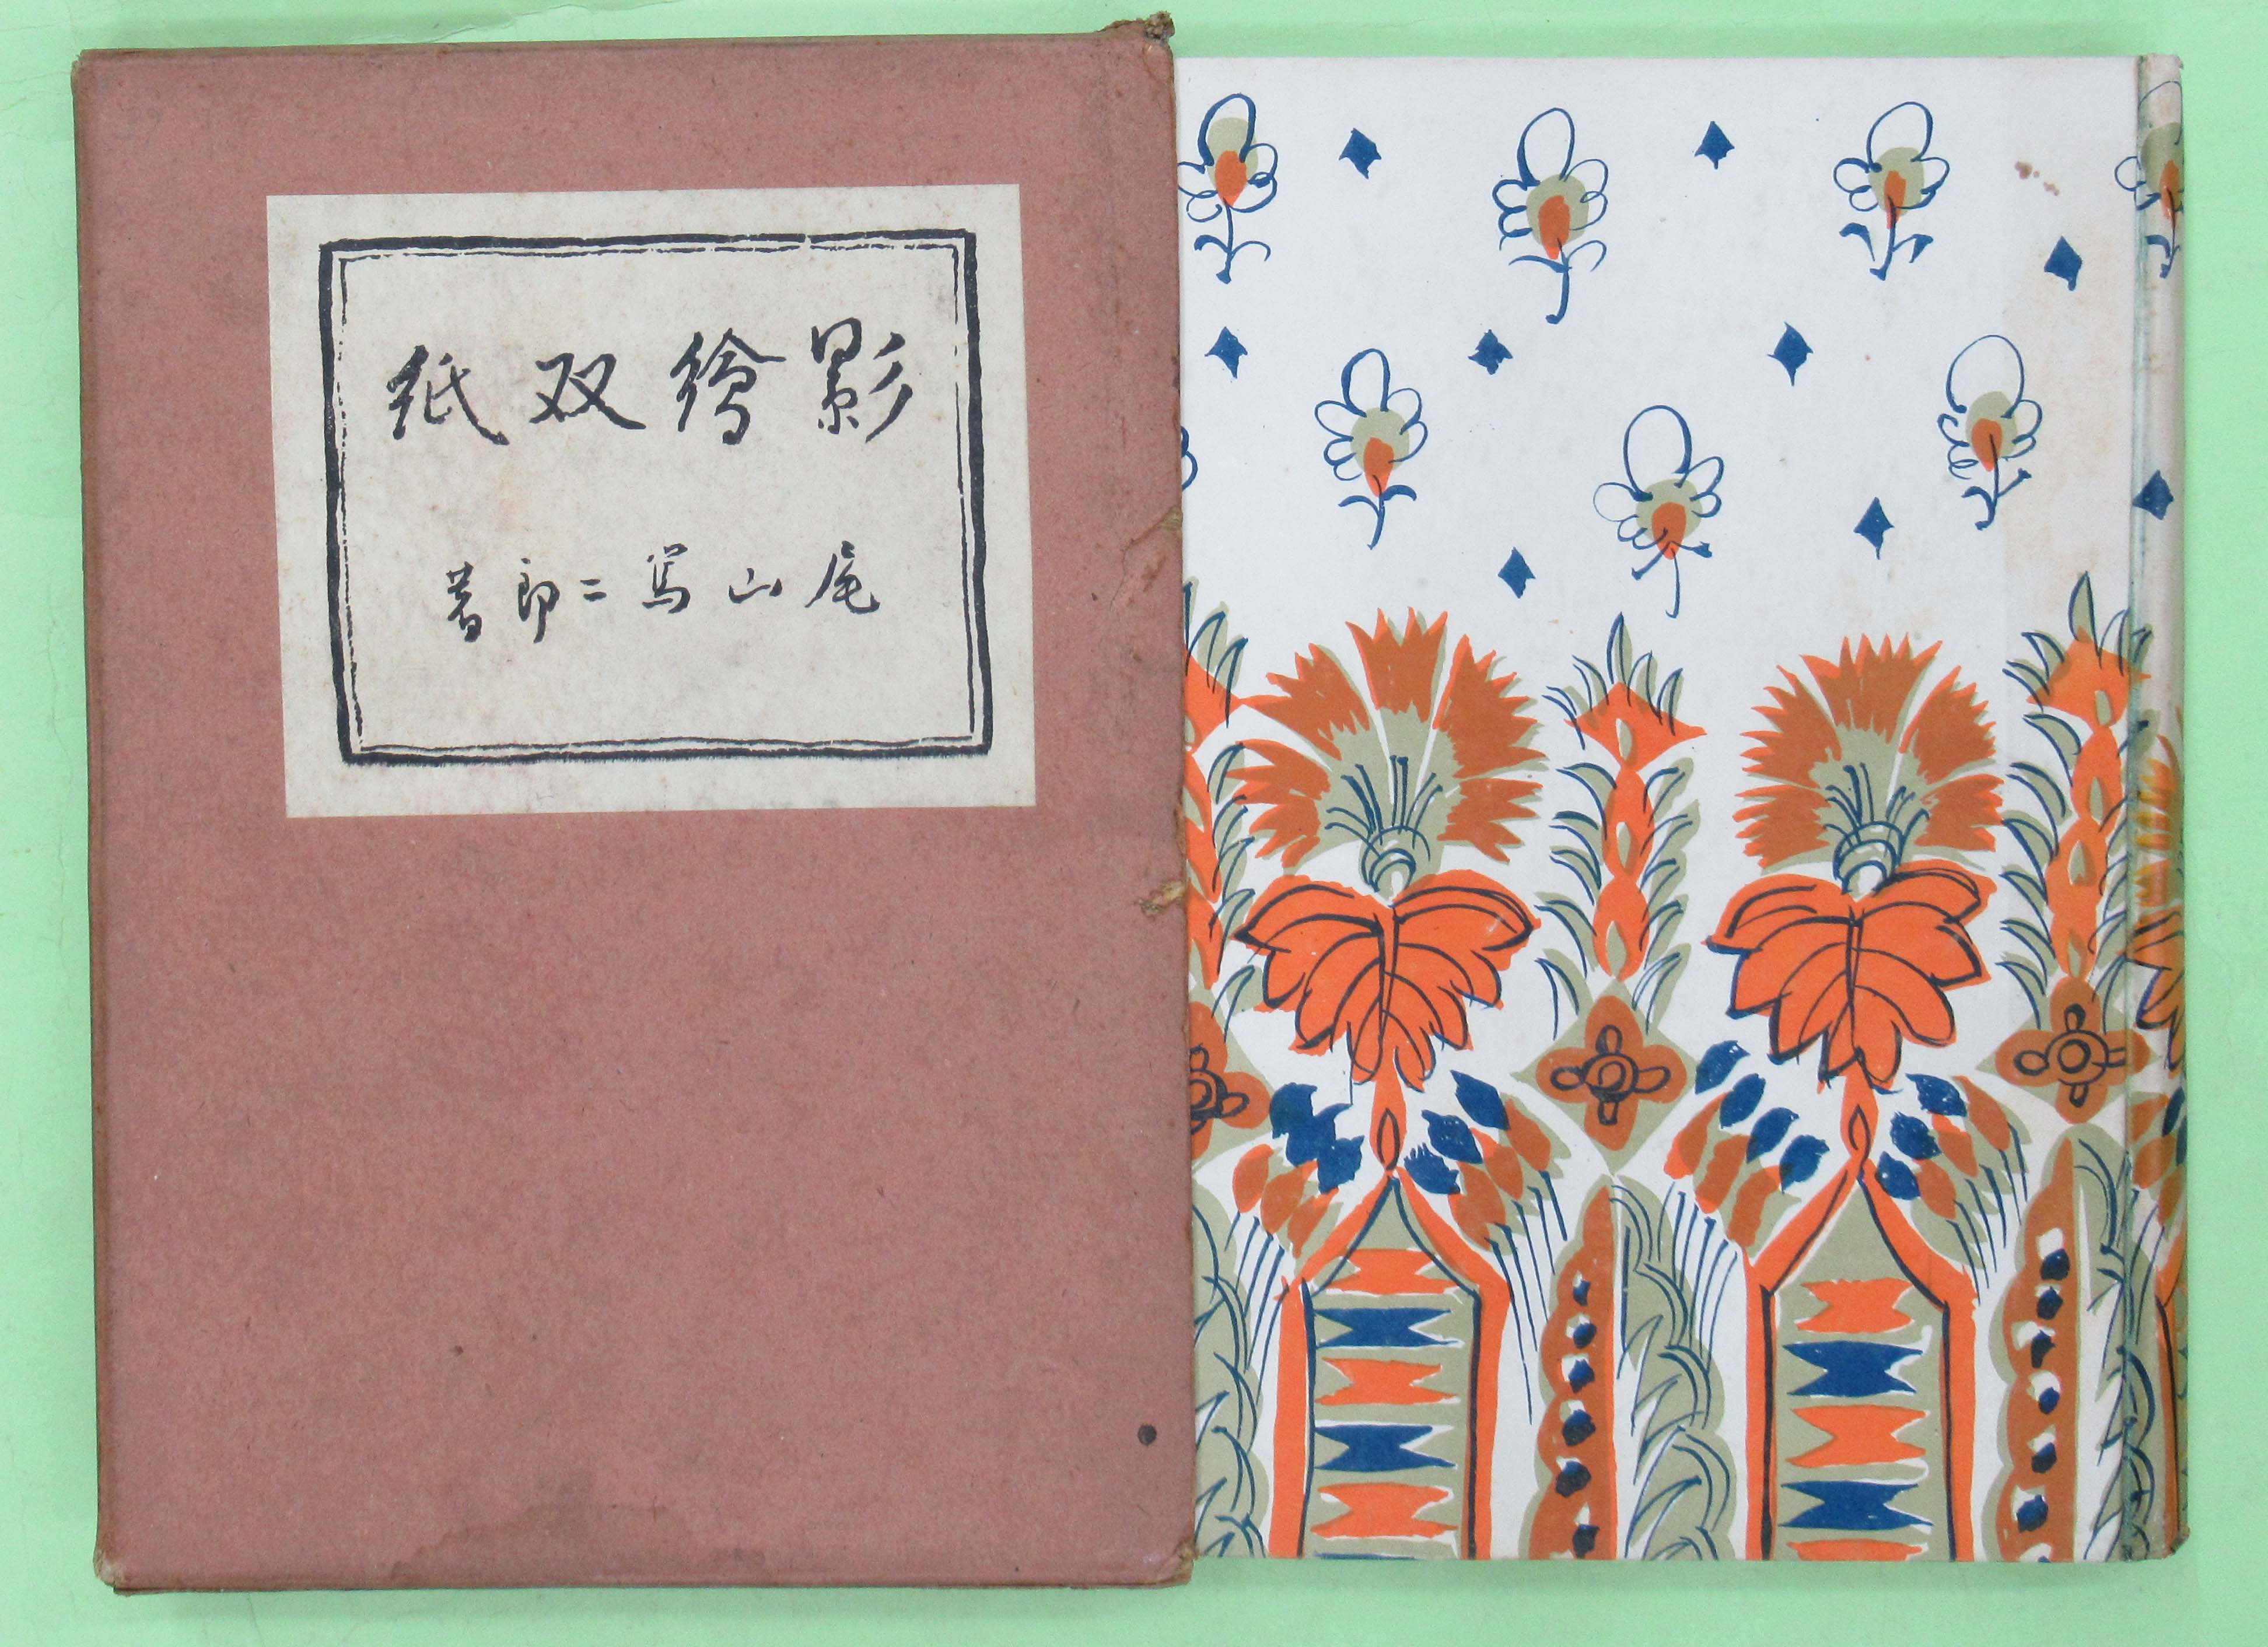 影繪双紙
尾山篤二郎著